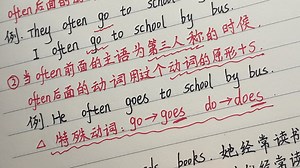 often后面的
例. They often go to school by bus.
I often go to school by bus.
②当often前面的主语为第三人称的时候,
often后面的动词用这个动词的原形+s.
例. He often goes to school by bus.
△ 特殊动词: go→goes do→does
books. 她经常读书
经常读